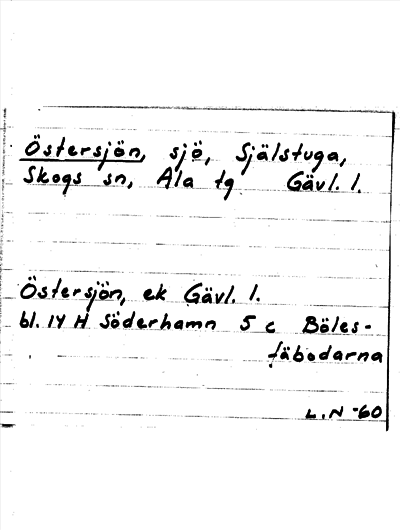 Östersjön, sjö, Själstuga,
Skogs sn, Ala tg Gävl. l.
Östersjön, ek Gävl. l.
bl. 14 H Söderhamn 5 c Böles-
fäbodarna
L.N -60